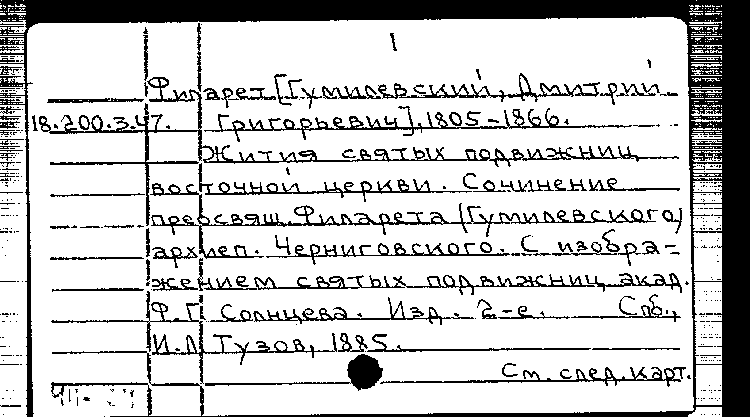 1
Филарет [Гумилевский, Дмитрий
18.200.3.47. Григорьевич], 1805-1866.
Жития святых подвижниц
восточной церкви. Сочинение
преосвящ. Филарета (Гумилевского)
архиеп. Черниговского. С изобра-
жением святых подвижниц акад.
Ф. Г. Солнцева. Изд. 2-е. Спб.,
И. Л. Тузов, 1885.
См. след. карт.